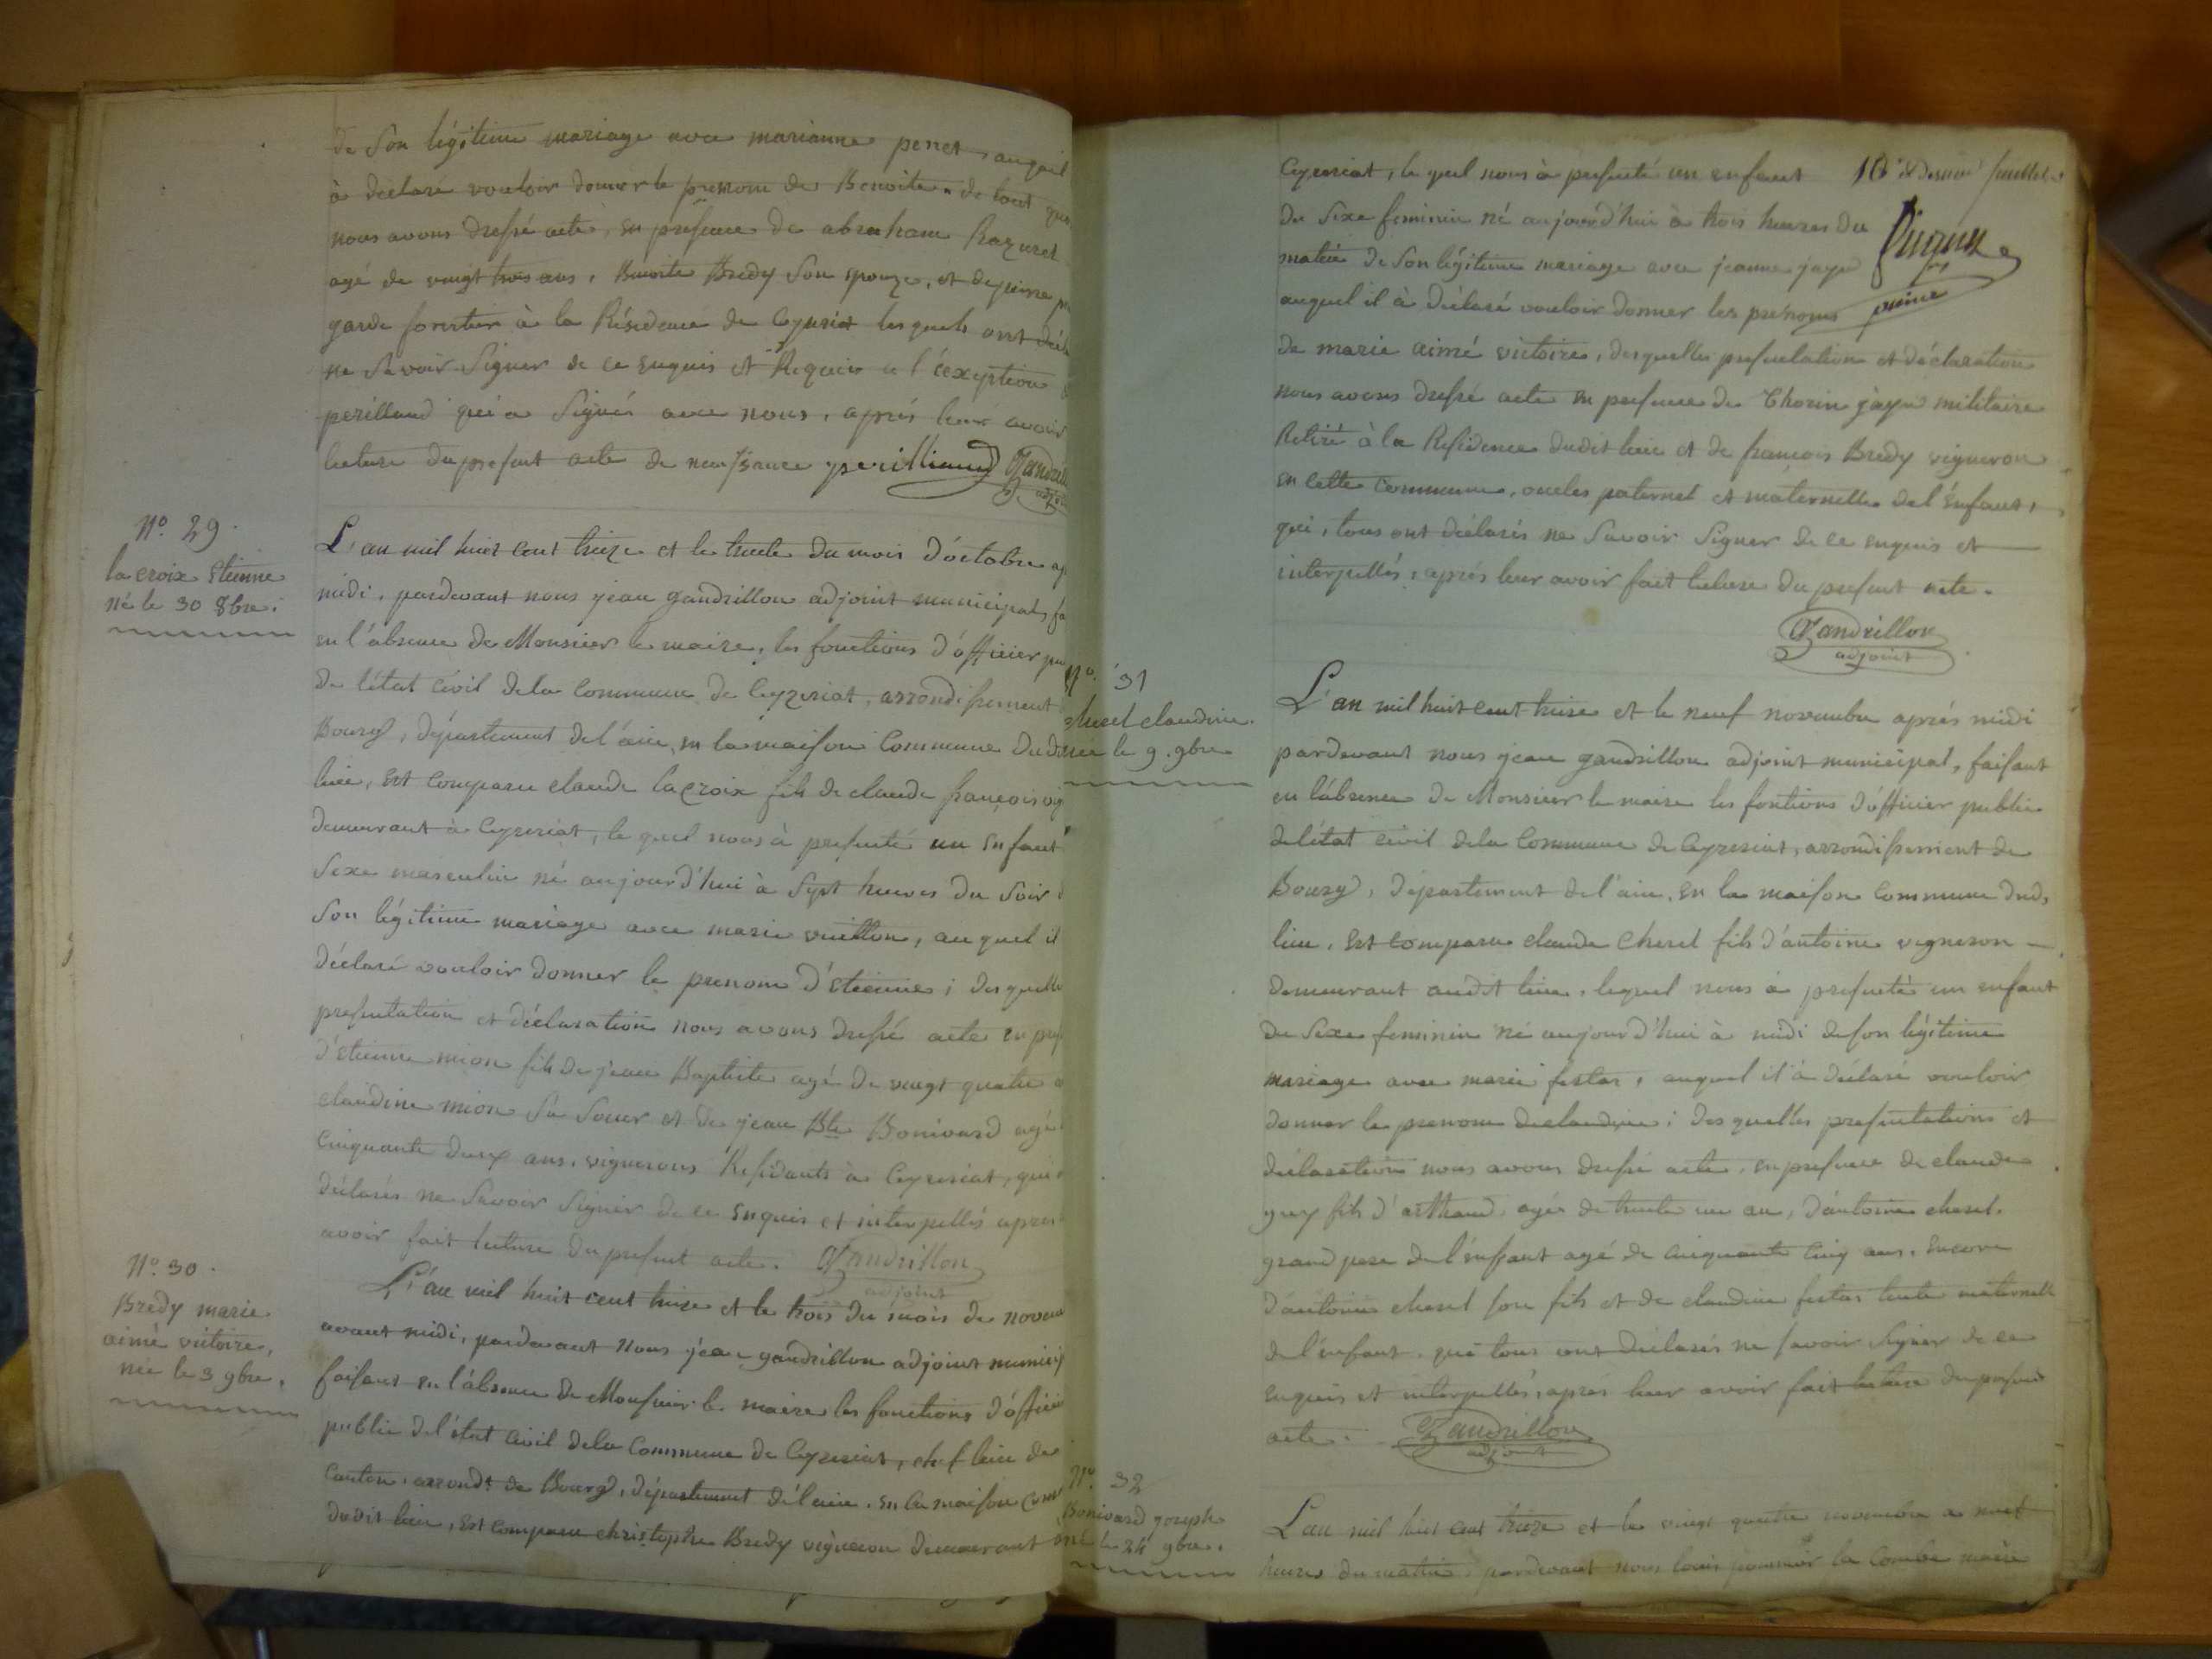 de Son légitime mariage avec marianne penet, auquel
à déclaré vouloir donner le prenom de Benoite. de tout quoi
nous avons dressé acte, en présence de abraham Razurel
agé de vingt trois ans, Benoite Bredy Son epouze, et de pierre
garde forestier à la Résidence de Ceyzeriat les quels ont
ne Savoir Signer de ce enquis et Requis à l'exception
perilland qui a Signé avec nous, après leur avoir
lecture du present acte de naissance perilliand Gandrillon
adjoint
N.º 29.
la croix Etienne
né le 30 8bre.
L'an mil huit cent treize et le trente du mois d'octobre
midi, pardevant nous jean gandrillon adjoint municipal,
en l'absence de Monsieur le maire, les fonctions d'officier
de l'état civil dela Commune de Ceyzeriat, arrondissement
Bourg, département de l'ain, en la maison Commune Dudit
lieu, Est comparu claude lacroix fils de claude françois
demeurant à Ceyzeriat, le quel nous à presenté un Enfant
Sexe masculin né aujourd'hui à Sept heures du Soir
Son légitime mariage avec marie vuillon, au quel il
déclaré vouloir donner le prenom d'Etienne; des quelle
presentation et déclaration nous avons dressé acte en
d'Etienne mion fils de jean Baptiste agé de vingt quatre
claudine mion Sa Soeur et de jean Bte Bonivard agé
Cinquante deux ans, vignerons Residants à Ceyzeriat, qui
déclarés ne Savoir Signer de ce Enquis et interpellés apres
avoir fait lecture du present acte. Gandrillon
adjoint
N.º 30.
Bredy marie
aimé victoire,
née le 3 9bre.
L'an mil huit cent treize et le trois du mois de
avant midi, pardevant nous jean gandrillon adjoint
faisant en l'absence de Monsieur le maire les fonctions d'officier
public de l'état Civil dela Commune de Ceyzeriat, chef lieu de
Canton, arrondt de Bourg, département de l'ain, en la maison
dudit lieu, Est comparu christophe Bredy vigneron demeurant
Ceyzeriat, le quel nous à presenté un enfant
10e & dernier feuillet.
du Sexe feminin né aujourd'hui à trois heures du
matin de Son légitime mariage avec jeanne jayr
auquel il à déclaré vouloir donner les prénoms
de marie aimé victoire, desquelles presentation et déclaration
nous avons dressé acte en presence de Thorin jayr militaire
Retiré à la Residence dudit lieu et de francois Bredy vigneron
en cette commune, oncles paternel et maternelle de l'Enfant,
qui, tous ont déclarés ne Savoir Signer de ce enquis et
interpellés, après leur avoir fait lecture du present acte.
Gandrillon
adjoint
Nº. 31
cherel claudine.
née le 9. 9bre
L'an mil huit cent treize et le neuf novembre après midi
pardevant nous jean gandrillon adjoint municipal, faisant
en l'absence de Monsieur le maire les fontions d'officier public
de l'état civil dela Commune de Ceyzeriat, arrondissement de
Bourg, département de l'ain, en la maison commune dud,
lieu, Est comparu claude Cherel fils d'antoine vigneron
demeurant audit lieu, lequel nous à presenté un enfant
du Sexe feminin né aujourd'hui à midi deson légitime
mariage avec marie festas, auquel il à déclaré vouloir
donner le prenom declaudine; des quelles presentations et
déclaration nous avons dressé acte, en presence de claude
guy fils d'arthaud agé de trente un an, d'antoine cherel.
grand pere de l'enfant agé de cinquante cinq ans, Encore
d'antoine cherel son fils et de claudine festas tante maternelle
de l'enfant, qui tous ont déclarés ne savoir signer de ce
enquis et interpellés, après leur avoir fait lecture du present
acte. Gandrillon
adjoint
Nº. 32
Bonivard joseph
né le 24 9bre.
L'an mil huit cent treize et le vingt quatre novembre a neuf
heures du matin, pardevant nous louis la Combe maire